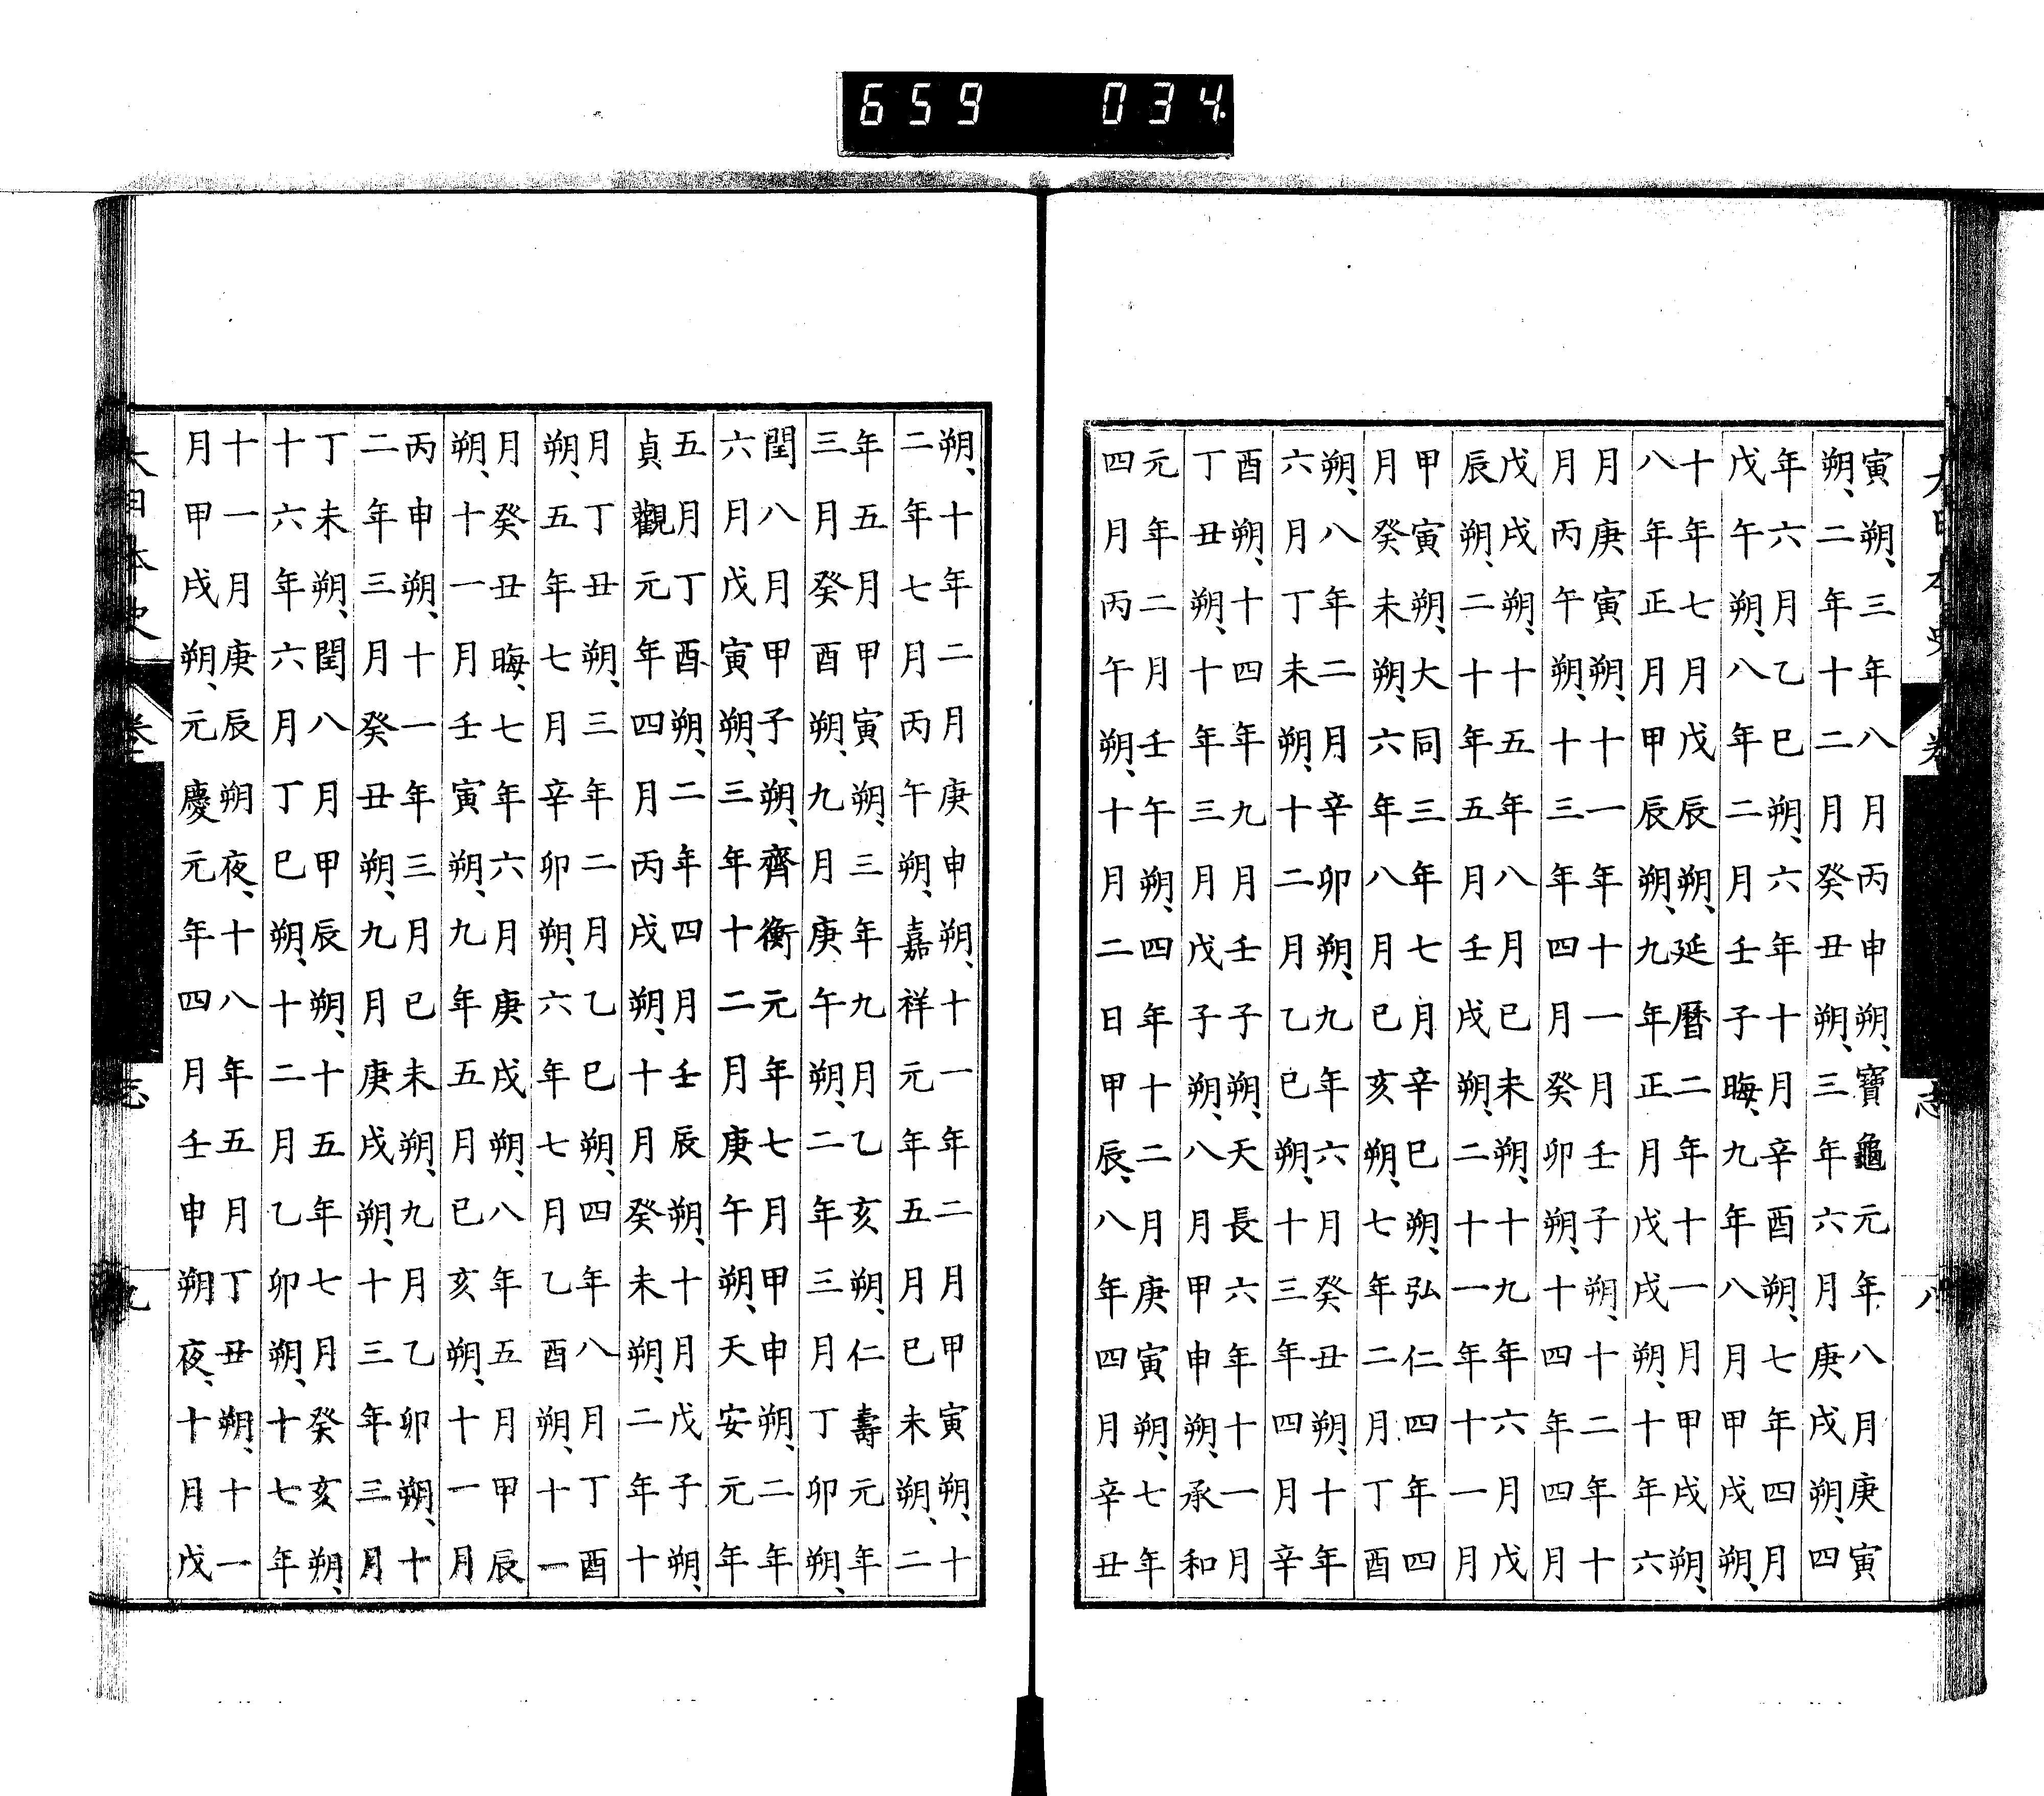 659 034
大日本史 卷 志 八
寅朔、三年八月丙申朔、寶龜元年八月庚寅
朔、二年十二月癸丑朔、三年六月庚戌朔、四
年六月乙巳朔、六年十月辛酉朔、七年四月
戊午朔、八年二月壬子晦、九年八月甲戌朔、
十年七月戊辰朔、延曆二年十一月甲戌朔、
八年正月甲辰朔、九年正月戊戌朔、十年六
月庚寅朔、十一年十一月壬子朔、十二年十
月丙午朔、十三年四月癸卯朔、十四年四月
戊戌朔、十五年八月己未朔、十九年六月戊
辰朔、二十年五月壬戌朔、二十一年十一月
甲寅朔、大同三年七月辛巳朔、弘仁四年四
月癸未朔、六年八月己亥朔、七年二月丁酉
朔、八年二月辛卯朔、九年六月癸丑朔、十年
六月丁未朔、十二月乙巳朔、十三年四月辛
酉朔、十四年九月壬子朔、天長六年十一月
丁丑朔、十年三月戊子朔、八月甲申朔、承和
元年二月壬午朔、四年十二月庚寅朔、七年
四月丙午朔、十月二日甲辰、八年四月辛丑
朔、十年二月庚申朔、十一年二月甲寅朔、十
二年七月丙午朔、嘉祥元年五月己未朔、二
年五月甲寅朔、三年九月乙亥朔、仁壽元年
三月癸酉朔、九月庚午朔、二年三月丁卯朔、
閏八月甲子朔、齊衡元年七月甲申朔、二年
六月戊寅朔、三年十二月庚午朔、天安元年
五月丁酉朔、二年四月壬辰朔、十月戊子朔、
貞觀元年四月丙戌朔、十月癸未朔、二年十
月丁丑朔、三年二月乙巳朔、四年八月丁酉
朔、五年七月辛卯朔、六年七月乙酉朔、十一
月癸丑晦、七年六月庚戌朔、八年五月甲辰
朔、十一月壬寅朔、九年五月己亥朔、十一月
丙申朔、十一年三月己未朔、九月乙卯朔、十
二年三月癸丑朔、九月庚戌朔、十三年三月
丁未朔、閏八月甲辰朔、十五年七月癸亥朔、
十六年六月丁巳朔、十二月乙卯朔、十七年
十一月庚辰朔夜、十八年五月丁丑朔、十一
月甲戌朔、元慶元年四月壬申朔夜、十月戊
大日本史 卷 志 九